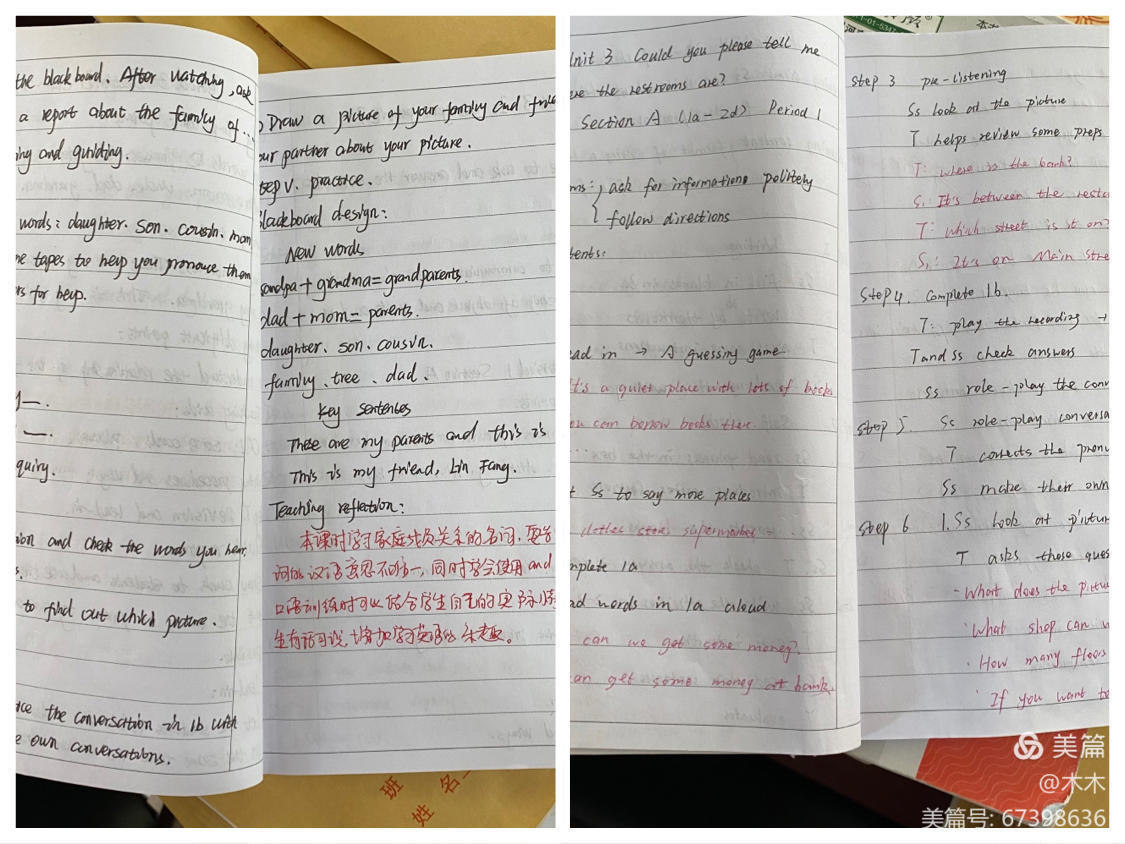 the blackboard. After watching, ask
a report about the family of...
ing and guiding.
words: daughter. son. cousin. mom
e tapes to help you pronouce them
rs for help.
quiry.
ion and check the words you hear.
s.
to find out which picture.
ice the conversation in 1b with
e own conversations.
Draw a picture of your family and frie
our partner about your picture.
tep V. practice.
Blackboard design:
New words
andpa + grandma = grandparents.
dad + mom = parents.
daughter. son. cousin.
family. tree. dad.
key sentences
These are my parents and this is
This is my friend, Lin Fang.
Teaching reflection:
本课时学习家庭成员关系的名词,要
词的汉语意思不唯一,同时学会使用and
口语训练时可以结合学生自己的实际
生有话可说,增加学习英语的乐趣。
班
姓 名
Unit 3 Could you please tell me
ere the restrooms are?
Section A (1a-2d) Period 1
ms: ask for informations politely
follow directions
tents:
ead in → A guessing game
It's a quiet place with lots of books
ou can borrow books there.
t Ss to say more places
clothes store supermarket
mplete 1a
ad words in 1a aloud
can we get some money?
an get some money at bank.
Step 3 pre-listening
Ss look at the picture
T helps review some preps
T: where is the bank?
S1: It's between the resta
T: which street is it on?
S1: It's on Main Stre
Step 4. Complete 1b.
T: play the recording →
T and Ss check answers
Ss role-play the conv
Step 5. Ss role-play conversa
T corrects the pronu
Ss make their own
Step 6 1. Ss look at pictur
T asks those ques
- What does the pictu
What shop can w
· How many floors
If you want to
美篇
@木木
美篇号: 67398636